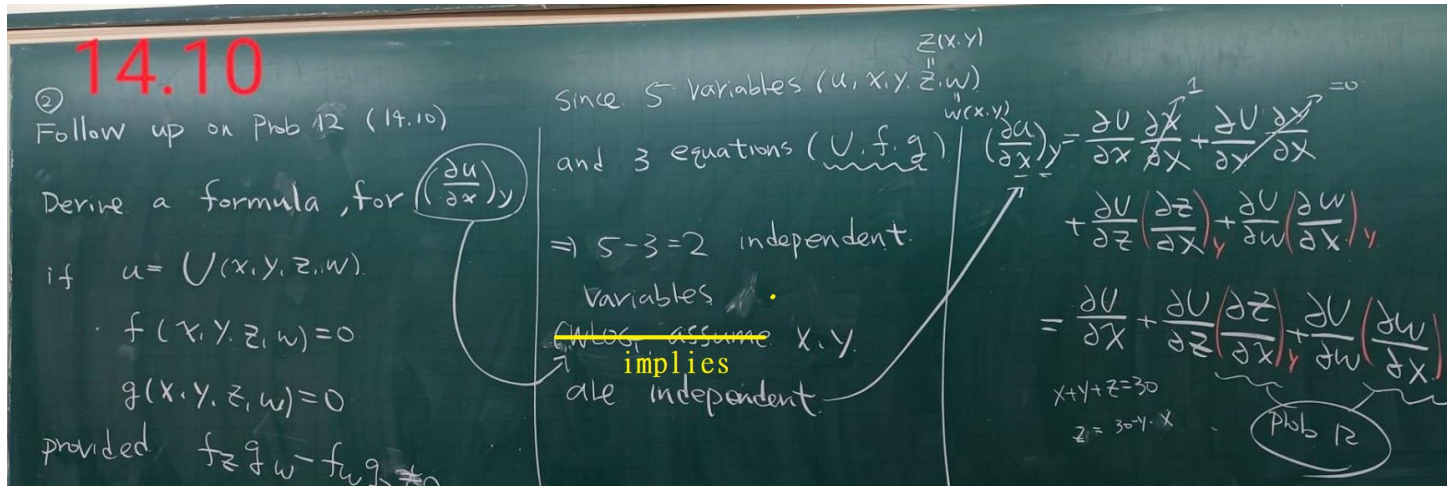 14.10
② Follow up on Prob 12 (14.10)
Derive a formula, for (∂u/∂x)y
if u = U(x, y, z, w).
f(x, y, z, w) = 0
g(x, y, z, w) = 0
provided fz gw - fw gz ≠ 0
z(x, y)
"
Since 5 variables (u, x, y, z, w)
"
w(x, y)
and 3 equations (U, f, g)
⇒ 5-3=2 independent
variables .
(WLOG, assume x, y.
implies
are independent
(∂u/∂x)y = ∂U/∂x ∂x/∂x + ∂U/∂y ∂y/∂x
1
=0
+ ∂U/∂z (∂z/∂x)y + ∂U/∂w (∂w/∂x)y
= ∂U/∂x + ∂U/∂z (∂z/∂x)y + ∂U/∂w (∂w/∂x)
x+y+z=30
z = 30-y-x
Prob 12